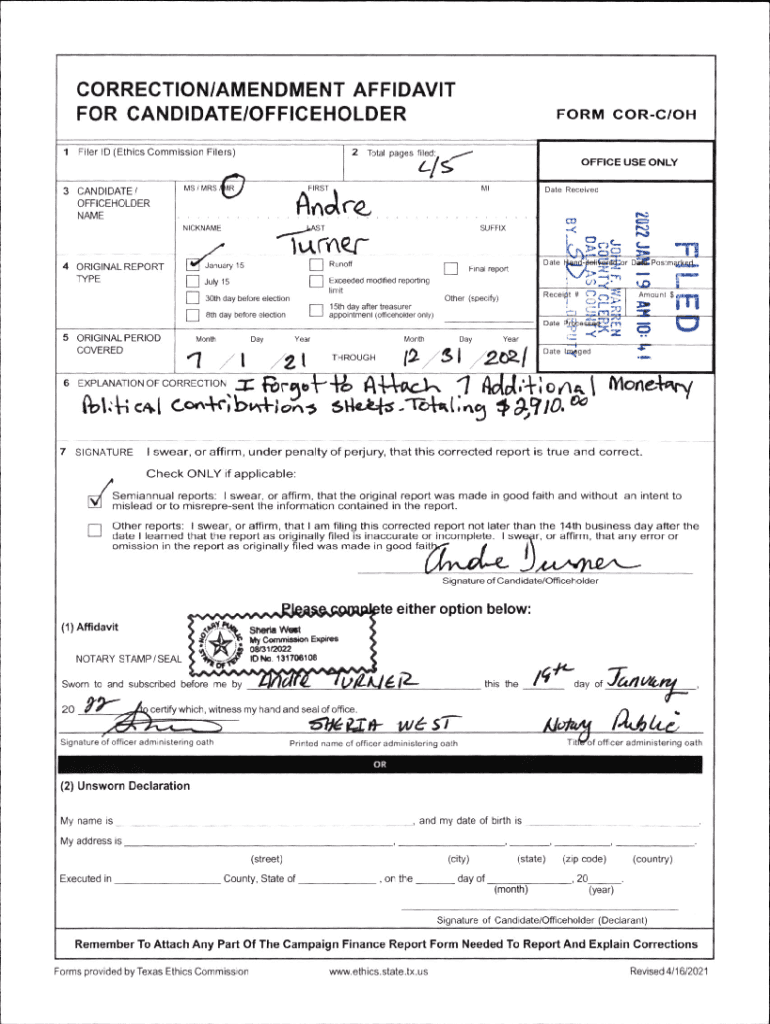 CORRECTION/AMENDMENT AFFIDAVIT
FOR CANDIDATE/OFFICEHOLDER
FORM COR-C/OH
1 Filer ID (Ethics Commission Filers)
2 Total pages filed:
OFFICE USE ONLY
3 CANDIDATE / OFFICEHOLDER NAME
MS / MRS / MR
FIRST
MI
Andre
NICKNAME
LAST
SUFFIX
Turner
Date Received
FILED
2022 JAN 19 AM 10:41
JOHN F. WARREN
COUNTY CLERK
DALLAS COUNTY
BY SD DEPUTY
Date Hand-delivered or Date Postmarked
Receipt #
Amount $
Date Processed
Date Imaged
4 ORIGINAL REPORT TYPE
January 15
Runoff
Final report
July 15
Exceeded modified reporting limit
30th day before election
Other (specify)
8th day before election
15th day after treasurer appointment (officeholder only)
5 ORIGINAL PERIOD COVERED
Month Day Year
Month Day Year
7 / 1 / 21 THROUGH 12 / 31 / 2021
6 EXPLANATION OF CORRECTION I forgot to Attach 7 Additional Monetary
Political Contributions sheets. Totaling $2,910.00
7 SIGNATURE I swear, or affirm, under penalty of perjury, that this corrected report is true and correct.
Check ONLY if applicable:
Semiannual reports: I swear, or affirm, that the original report was made in good faith and without an intent to
mislead or to misrepre-sent the information contained in the report.
Other reports: I swear, or affirm, that I am filing this corrected report not later than the 14th business day after the
date I learned that the report as originally filed is inaccurate or incomplete. I swear, or affirm, that any error or
omission in the report as originally filed was made in good faith.
Andre Turner
Signature of Candidate/Officeholder
Please complete either option below:
(1) Affidavit
NOTARY PUBLIC
STATE OF TEXAS
Sheria West
My Commission Expires
08/31/2022
ID No. 131706108
NOTARY STAMP / SEAL
Sworn to and subscribed before me by Andre TURNER this the 19th day of January,
20 22, to certify which, witness my hand and seal of office.
SHERIA WEST
Notary Public
Signature of officer administering oath
Printed name of officer administering oath
Title of officer administering oath
OR
(2) Unsworn Declaration
My name is , and my date of birth is .
My address is , , , , .
(street) (city) (state) (zip code) (country)
Executed in County, State of , on the day of , 20 .
(month) (year)
Signature of Candidate/Officeholder (Declarant)
Remember To Attach Any Part Of The Campaign Finance Report Form Needed To Report And Explain Corrections
Forms provided by Texas Ethics Commission
www.ethics.state.tx.us
Revised 4/16/2021